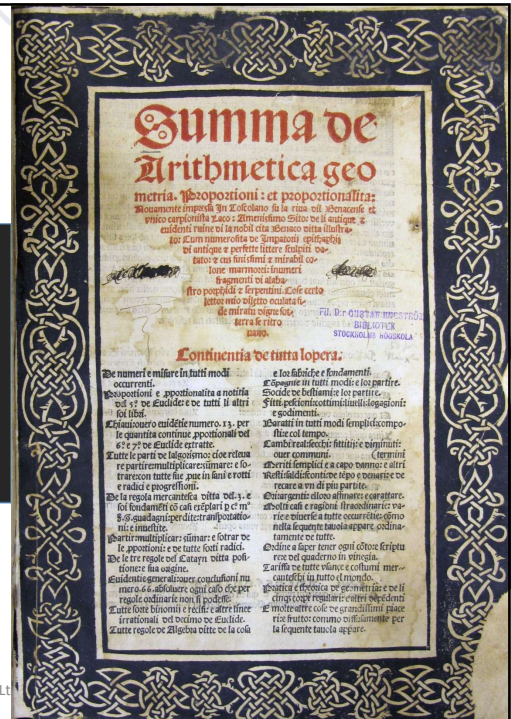 Summa de
Arithmetica geo
metria. Proportioni: et proportionalita:
Novamente impressa In Toscolano su la riva dil Benacense et
unico carpionista Laco: Amenissimo Sito: de li antique &
evidenti ruine di la nobil cita Benaco ditta illustra-
to: Cum numerosita de Imperatorii epithaphii
di antique e perfette littere sculpiti do-
tato: & cũs finissimi & mirabil co-
lone marmorei: inumeri
fragmenti di alaba-
stro porphidi & serpentini. Cose certo
lettor mio diletto oculata fi-
de miratu digne sot-
terra se ritro
vano.
FIL. D:r GUSTAF
BIBLIOTEK
STOCKHOLMS HÖGSKOLA
Continentia de tutta lopera.
De numeri e misure in tutti modi
occurrenti.
Proportioni e pportionalita a notitia
del 5º de Euclide e de tutti li altri
soi libri.
Chiavi: overo evidẽtie numero. 13. per
le quantita continue pportionali del
6º e 7º de Euclide extratte.
Tutte le parti de lalgorismo: cioe releva
re partire: multiplicare: sũmare: e so-
trare con tutte sue pve in sani e rotti
e radici e progressioni.
De la regola mercantesca ditta del. 3. e
soi fondamẽti cõ casi exẽplari p
guadagni: perdite: transportatio-
ni: e investite.
Partir: multiplicar: sũmar: e sotrar de
le pportioni: e de tutte sorti radici.
De le tre regole del Catayn ditta posi-
tione e sua origine.
Evidentie generali: over conclusioni nu
mero. 66. absolvere ogni caso che per
regole ordinarie non si podesse.
Tutte sorte binomii e recisi e altre linee
irrationali del decimo de Euclide.
Tutte regole de Algebra ditte de la cosa
e lor fabriche e fondamenti.
Cõpagnie in tutti modi: e lor partire.
Socide de bestiami: e lor partire.
Fitti: pescioni: cottimi: livelli: logagioni:
e godimenti.
Baratti in tutti modi semplici: compo-
sti: e col tempo.
Cambi reali: secchi: fittitii: e diminuti:
over communi.
Meriti semplici e a capo danno: e altri (termini
Resti: saldi: sconti: de tẽpo e denari e de
recare a un di piu partite.
Ori: argenti: e lloro affinare: e carattare.
Molti casi e ragioni straordinarie: va-
rie e diverse a tutte occurrẽtie: cõmo
nella sequente tavola appare ordina-
tamente de tutte.
Ordine a saper tener ogni cõto: e scriptu
re e del quaderno in vinegia.
Tariffa de tutte usançe e costumi mer-
canteschi in tutto el mondo.
Pratica e theorica de geometria: e de li
cinque corpi regulari: e altri dependenti
E molte altre cose de grandissimi piace
ri: e frutto: commo diffusamente per
la sequente tavola appare.
Lt